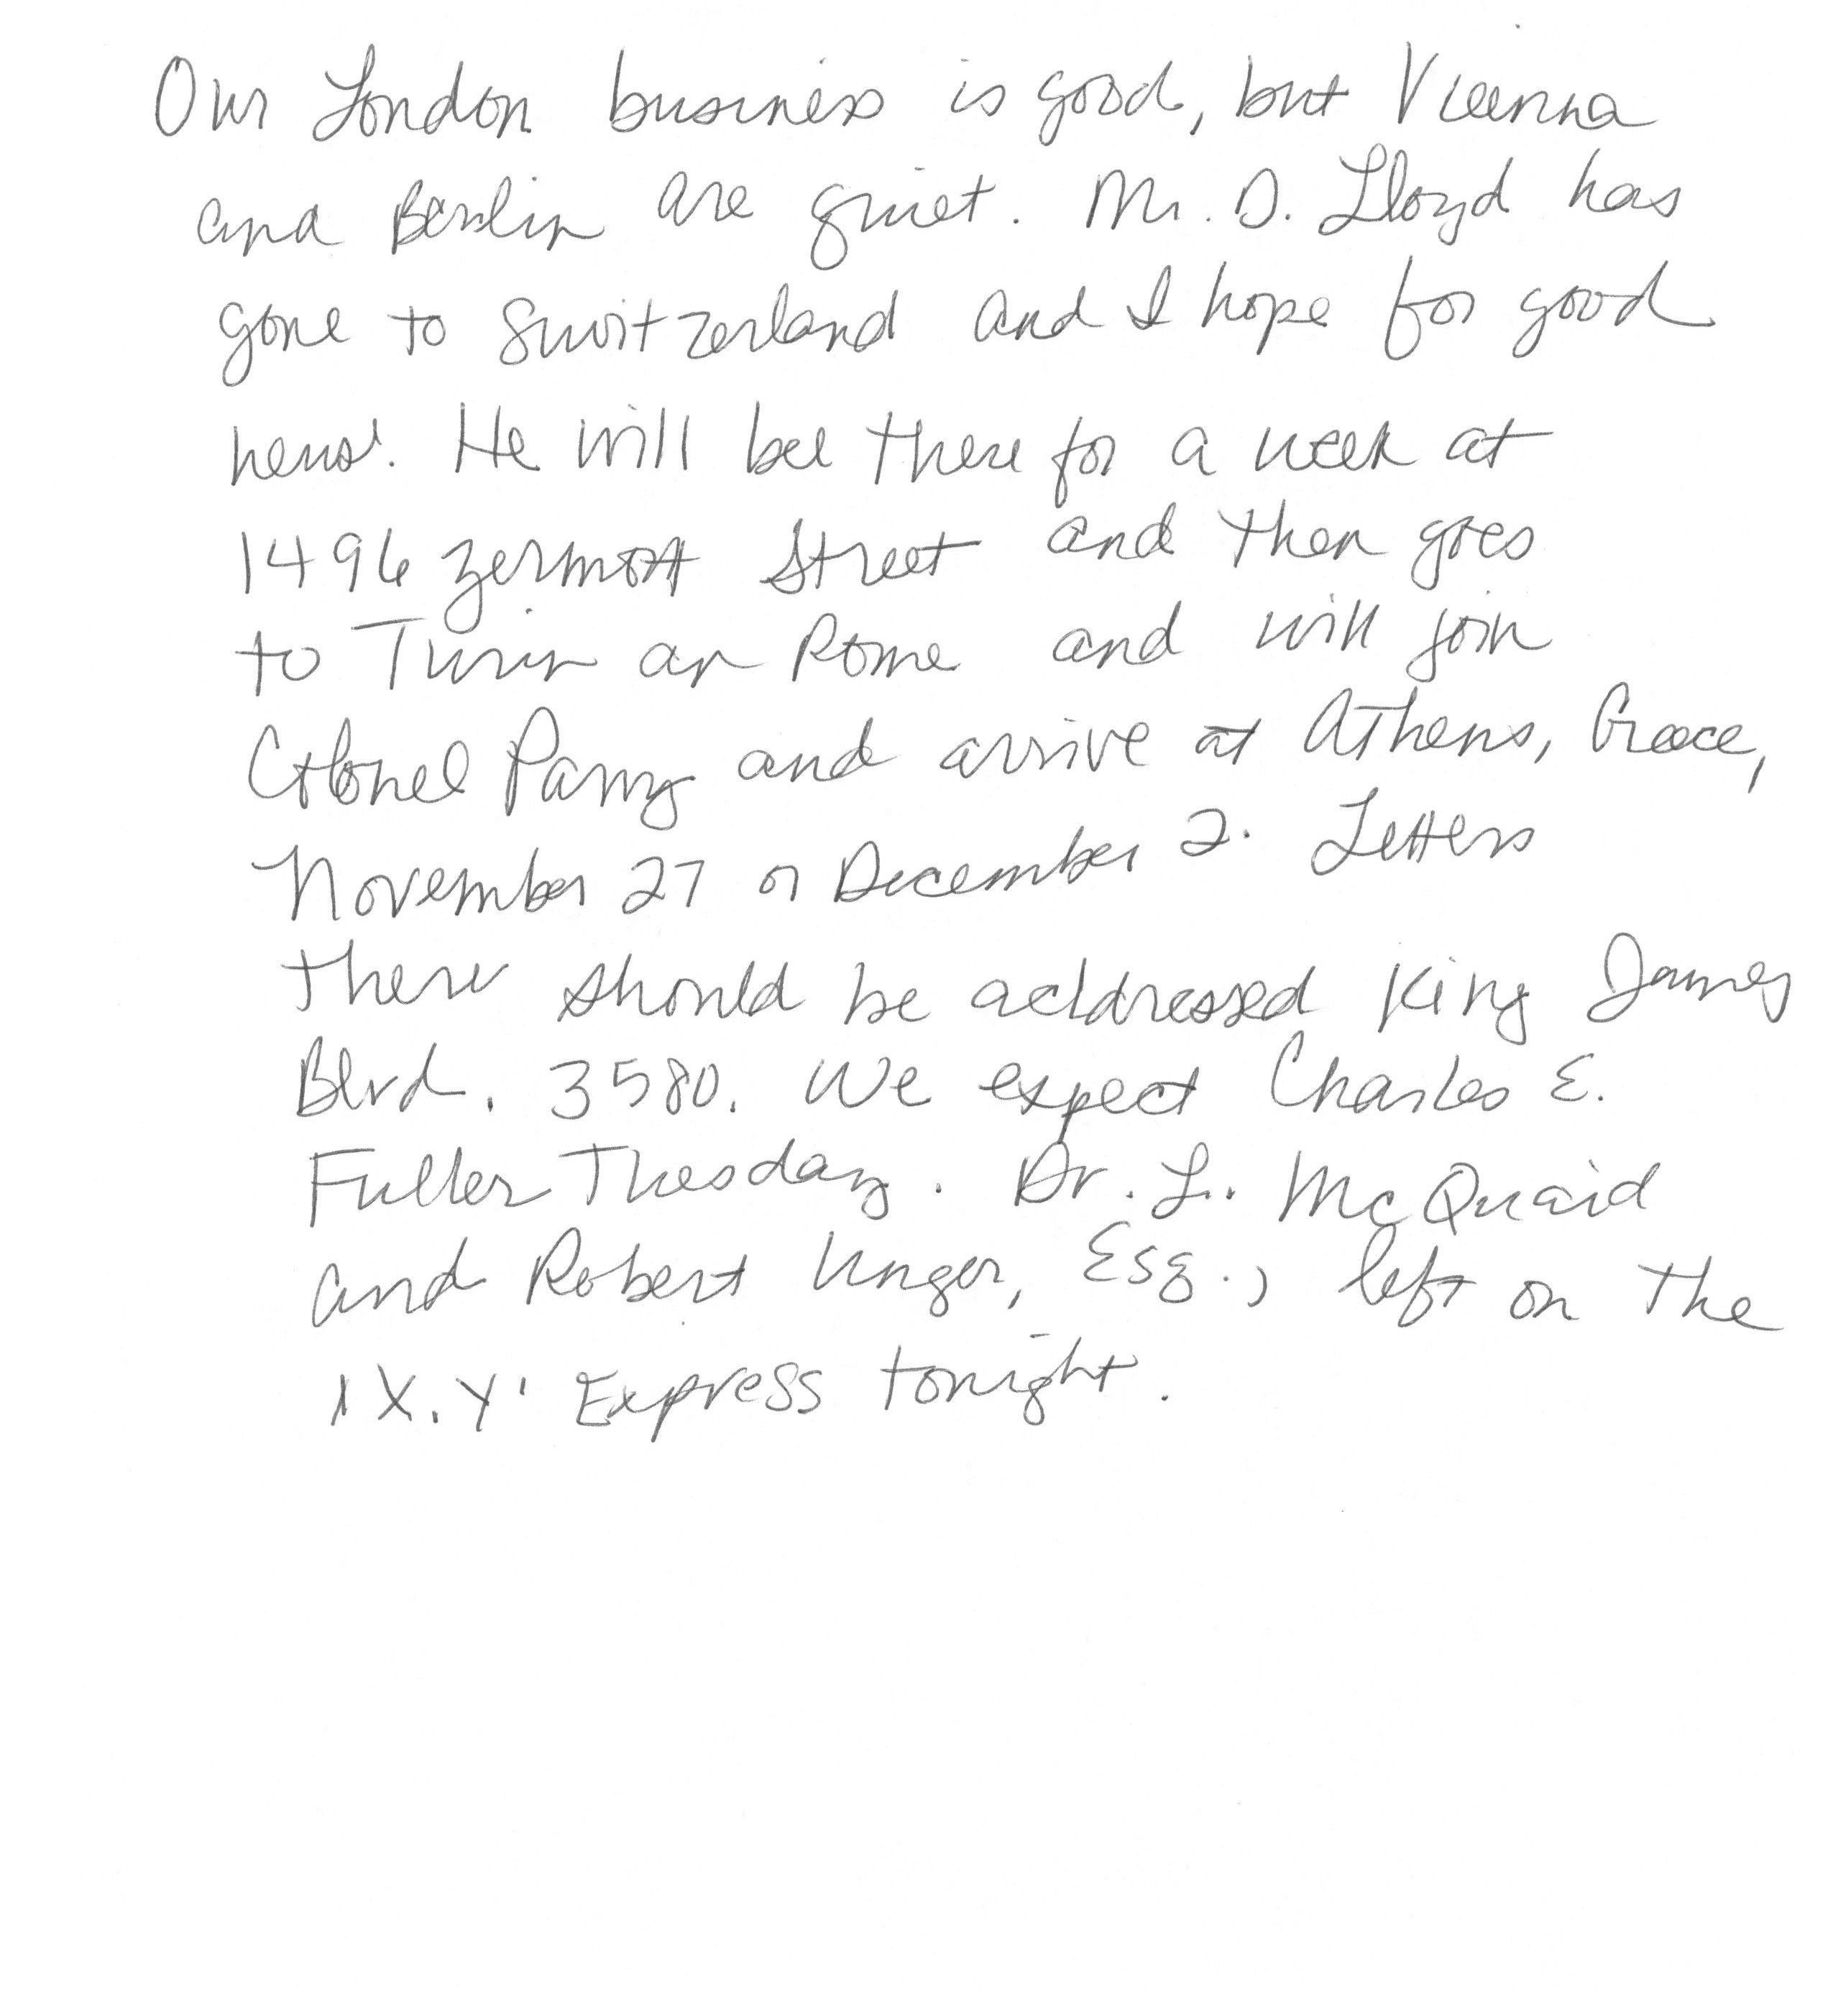 Our London business is good, but Vienna
and Berlin are quiet. Mr. D. Lloyd has
gone to Switzerland and I hope for good
news. He will be there for a week at
1496 Zermott Street and then goes
to Turin an Rome and will join
Colonel Parry and arrive at Athens, Greece,
November 27 or December 2. Letters
there should be addressed King James
Blvd. 3580. We expect Charles E.
Fuller Tuesday. Dr. L. McQuaid
and Robert Unger, Esq., left on the
'X.Y' Express tonight.